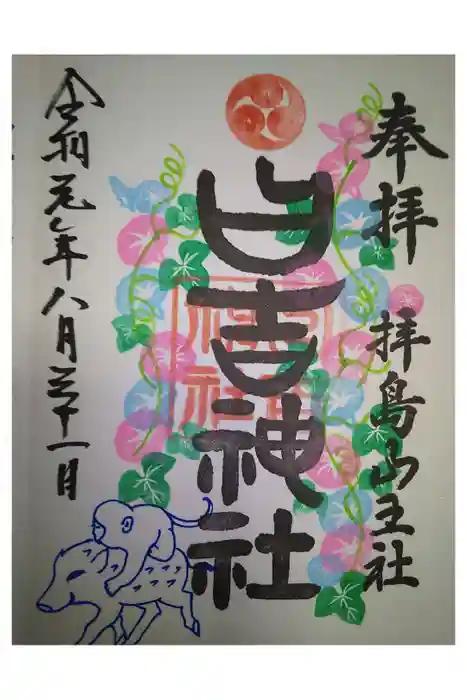 奉拝
拝島山王社
日吉神社
令和元年八月三十一日